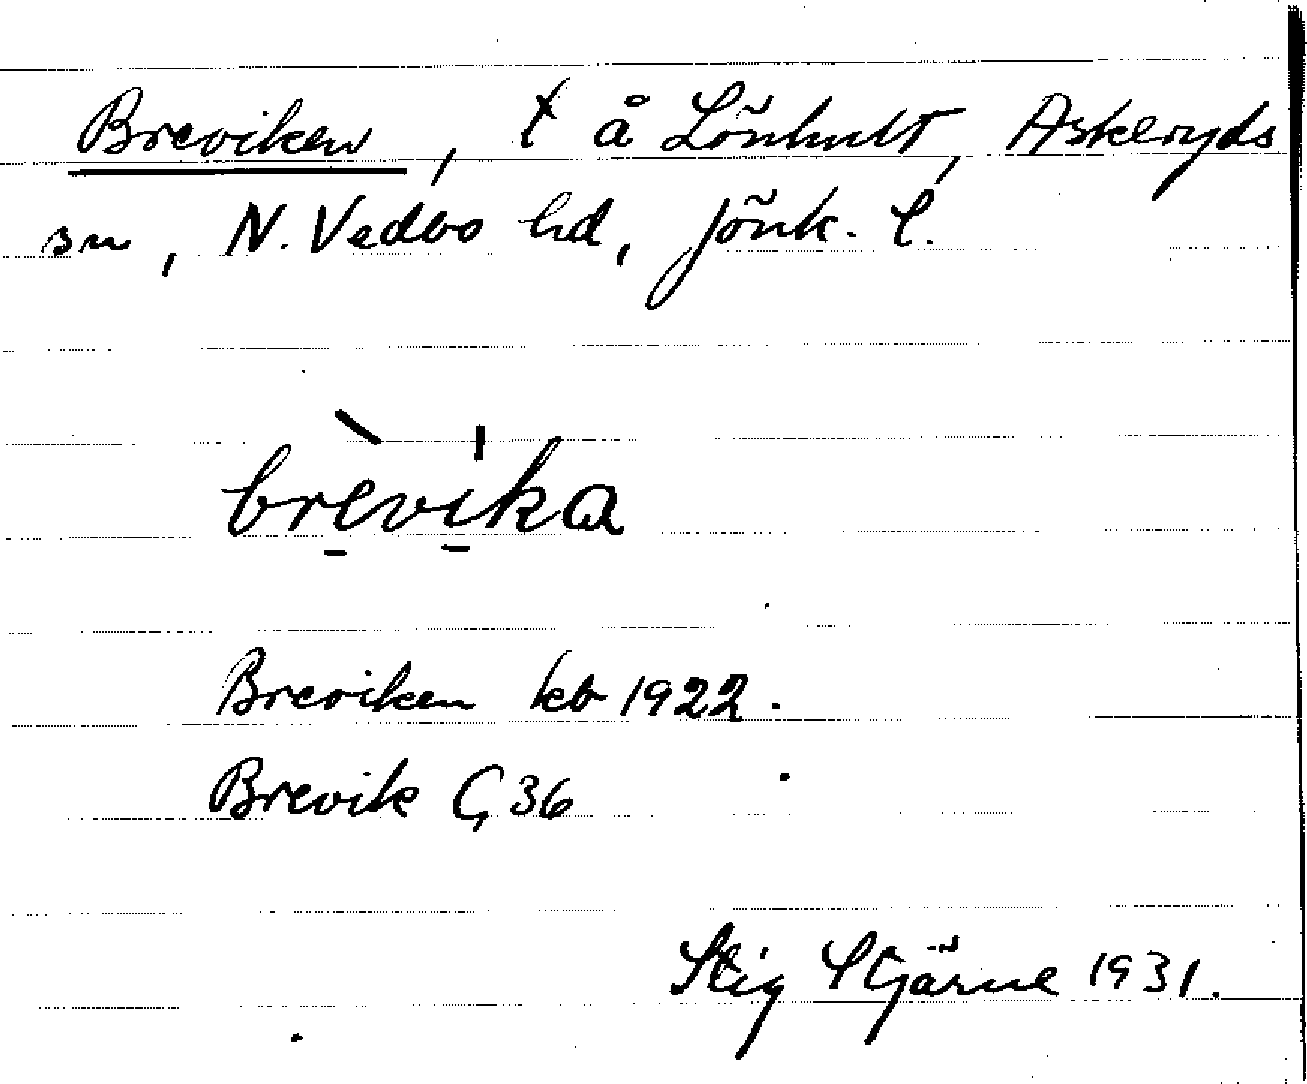 Breviken, t å Lönhult, Askeryds
sn, N. Vedbo hd, Jönk. l.
brèvika
Breviken kb 1922.
Brevik G, 36
Stig Stjärne 1931.